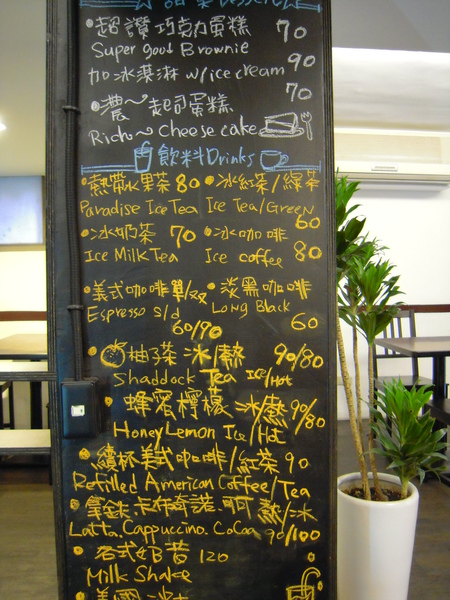 超讚巧克力蛋糕 70
Super good Brownie
加冰淇淋 w/ice cream 90
濃~起司蛋糕 70
Rich~ Cheese cake
飲料 Drinks
熱帶水果茶 80 冰紅茶/綠茶
Paradise Ice Tea Ice Tea/Green
60
冰奶茶 70 冰咖啡
Ice Milk Tea Ice coffee 80
美式咖啡單/双 淡黑咖啡
Espresso s/d Long Black
60/90 60
柚子茶 冰/熱 90/80
Shaddock Tea Ice/Hot
蜂蜜檸檬 冰/熱 90/80
Honey Lemon Ice/Hot
續杯美式咖啡/紅茶 90
Refilled American Coffee/Tea
拿鐵.卡布奇諾.可可 熱/冰
Latta.Cappuccino.CoCoa 90/100
各式奶昔 120
Milk Shake